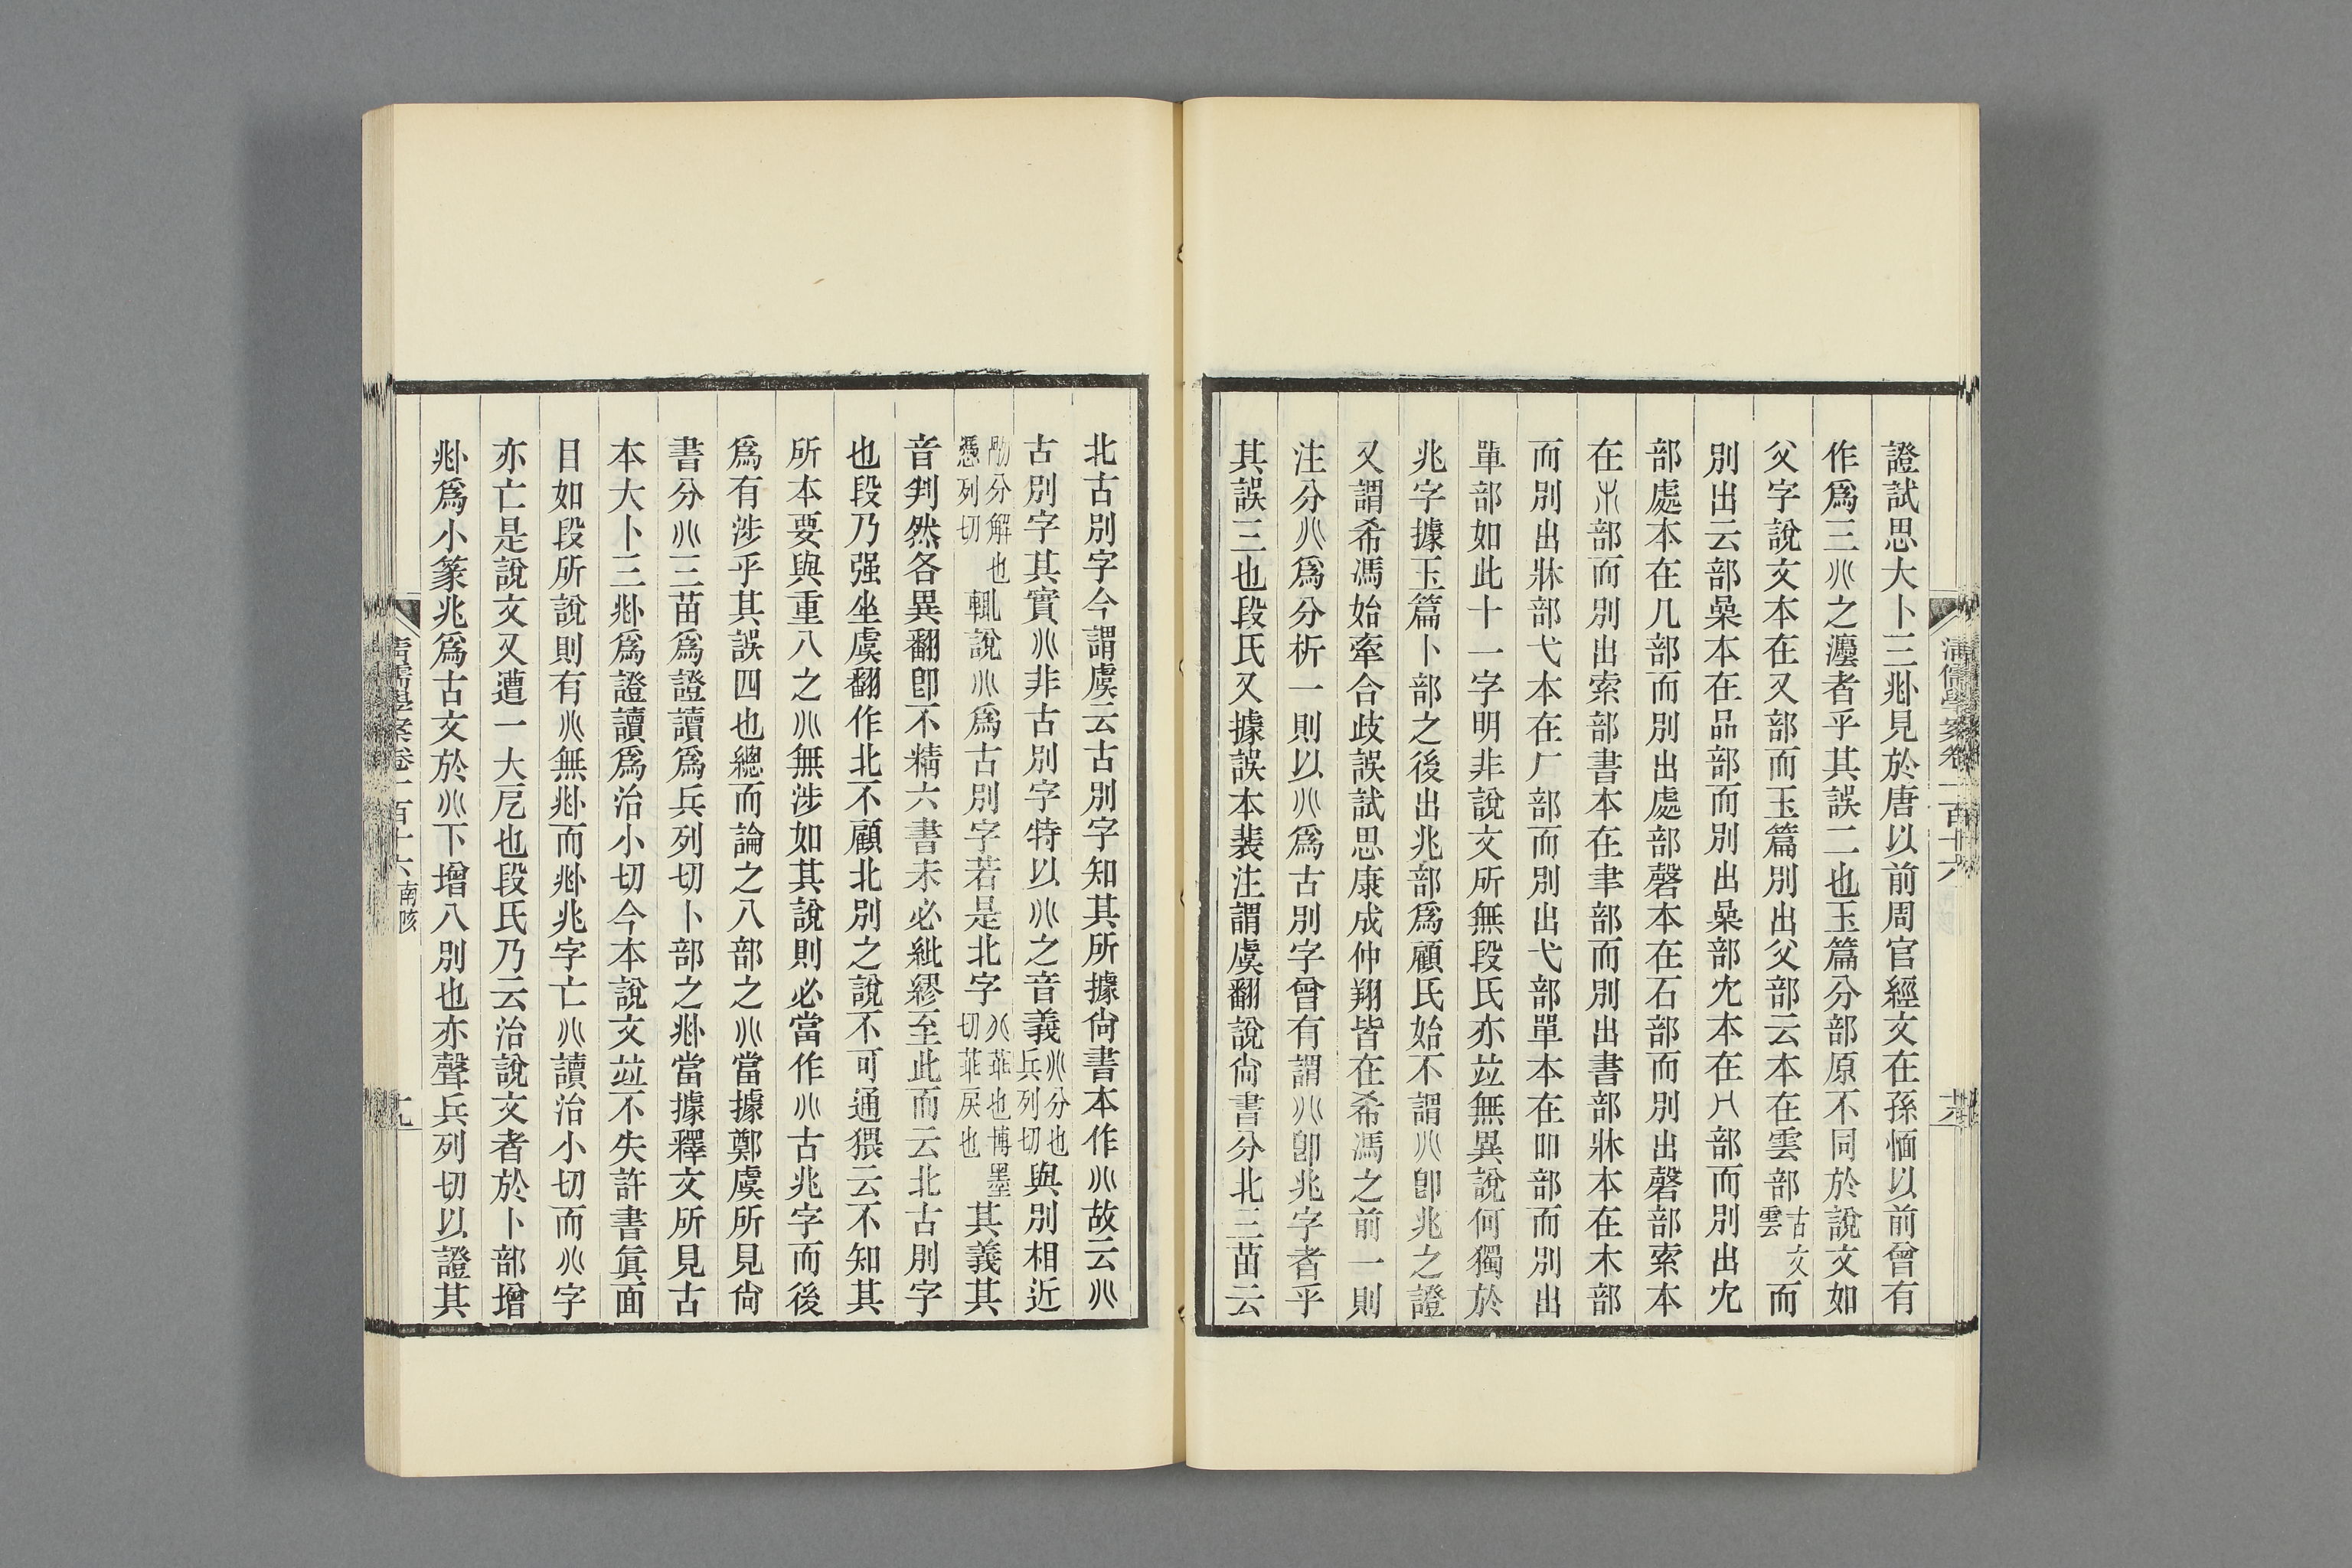 證試思大卜三𠧞見於唐以前周官經文在孫愐以前曾有
作爲三𠔁之灋者乎其誤二也玉篇分部原不同於說文如
父字說文本在又部而玉篇別出父部云本在雲部古文雲而
別出云部喿本在品部而別出喿部冘本在𠘨部而別出冘
部處本在几部而別出處部磬本在石部而別出磬部索本
在𣎵部而別出索部書本在聿部而別出書部牀本在木部
而別出牀部弋本在𠂆部而別出弋部單本在吅部而別出
單部如此十一字明非說文所無段氏亦竝無異說何獨於
兆字據玉篇卜部之後出兆部爲顧氏始不謂𠔁卽兆之證
又謂希馮始牽合歧誤試思康成仲翔皆在希馮之前一則
注分𠔁爲分析一則以𠔁爲古別字曾有謂𠔁卽兆字者乎
其誤三也段氏又據誤本裴注謂虞翻說尙書分北三苗云
北古別字今謂虞云古別字知其所據尙書本作𠔁故云𠔁
古別字其實𠔁非古別字特以𠔁之音義𠔁分也兵列切與別相近
分解也憑列切輒說𠔁爲古別字若是北字𠔁菲也博墨切菲戾也其義其
音判然各異翻卽不精六書未必紕繆至此而云北古別字
也段乃强坐虞翻作北不顧北別之說不可通猥云不知其
所本要與重八之𠔁無涉如其說則必當作𠔁古兆字而後
爲有涉乎其誤四也總而論之八部之𠔁當據鄭虞所見尙
書分𠔁三苗爲證讀爲兵列切卜部之𠧞當據釋文所見古
本大卜三𠧞爲證讀爲治小切今本說文竝不失許書眞面
目如段所說則有𠔁無𠧞而𠧞兆字亡𠔁讀治小切而𠔁字
亦亡是說文又遭一大戹也段氏乃云治說文者於卜部增
𠧞爲小篆兆爲古文於𠔁下增八別也亦聲兵列切以證其
清儒學案卷一百十六
清儒學案卷一百十六 南陔